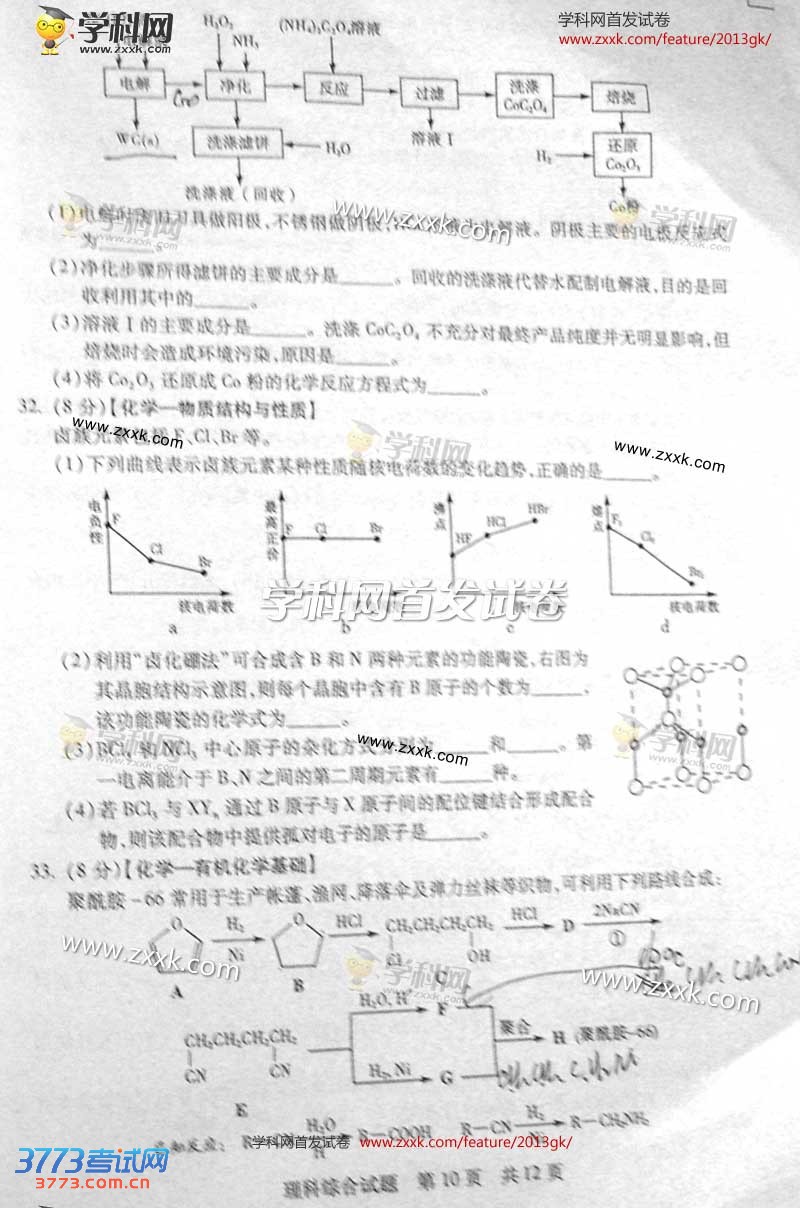 学科网
www.zxxk.com
学科网首发试卷
www.zxxk.com/feature/2013gk/
H₂O₂
NH₃
(NH₄)₂C₂O₄溶液
电解
净化
反应
过滤
洗涤 CoC₂O₄
焙烧
WC(s)
洗涤滤饼
H₂O
溶液 I
H₂
还原 Co₂O₃
洗涤液(回收)
Co粉
为______。
(2)净化步骤所得滤饼的主要成分是______。回收的洗涤液代替水配制电解液,目的是回
收利用其中的______。
(3)溶液 I 的主要成分是______。洗涤 CoC₂O₄ 不充分对最终产品纯度并无明显影响,但
焙烧时会造成环境污染,原因是______。
(4)将 Co₂O₃ 还原成 Co 粉的化学反应方程式为______。
32. (8 分)【化学—物质结构与性质】
卤族元素包括 F、Cl、Br 等。
(1)下列曲线表示卤族元素某种性质随核电荷数的变化趋势,正确的是______。
电负性 F Cl Br 核电荷数 a
最高正价 F Cl Br b
沸点 HF HCl HBr c
熔点 F₂ Cl₂ Br₂ 核电荷数 d
学科网首发试卷
(2)利用“卤化硼法”可合成含 B 和 N 两种元素的功能陶瓷,右图为
其晶胞结构示意图,则每个晶胞中含有 B 原子的个数为______,
该功能陶瓷的化学式为______。
(3)BCl₃ 和 NCl₃ 中心原子的杂化方式分别为______和______。第
一电离能介于 B、N 之间的第二周期元素有______种。
(4)若 BCl₃ 与 XYₙ 通过 B 原子与 X 原子间的配位键结合形成配合
物,则该配合物中提供孤对电子的原子是______。
33. (8 分)【化学—有机化学基础】
聚酰胺-66 常用于生产帐蓬、渔网、降落伞及弹力丝袜等织物,可利用下列路线合成:
O H₂ Ni O HCl CH₂CH₂CH₂CH₂ HCl D 2NaCN ①
Cl OH
A B C
H₂O,H⁺ F
CH₂CH₂CH₂CH₂
CN CN
聚合 H (聚酰胺-66)
H₂,Ni G
E
已知反应: R—CN H₂O H⁺ R—COOH R—CN H₂ Ni R—CH₂NH₂
学科网首发试卷 www.zxxk.com/feature/2013gk/
3773考试网
3773.com.cn
理科综合试题 第10页 共12页